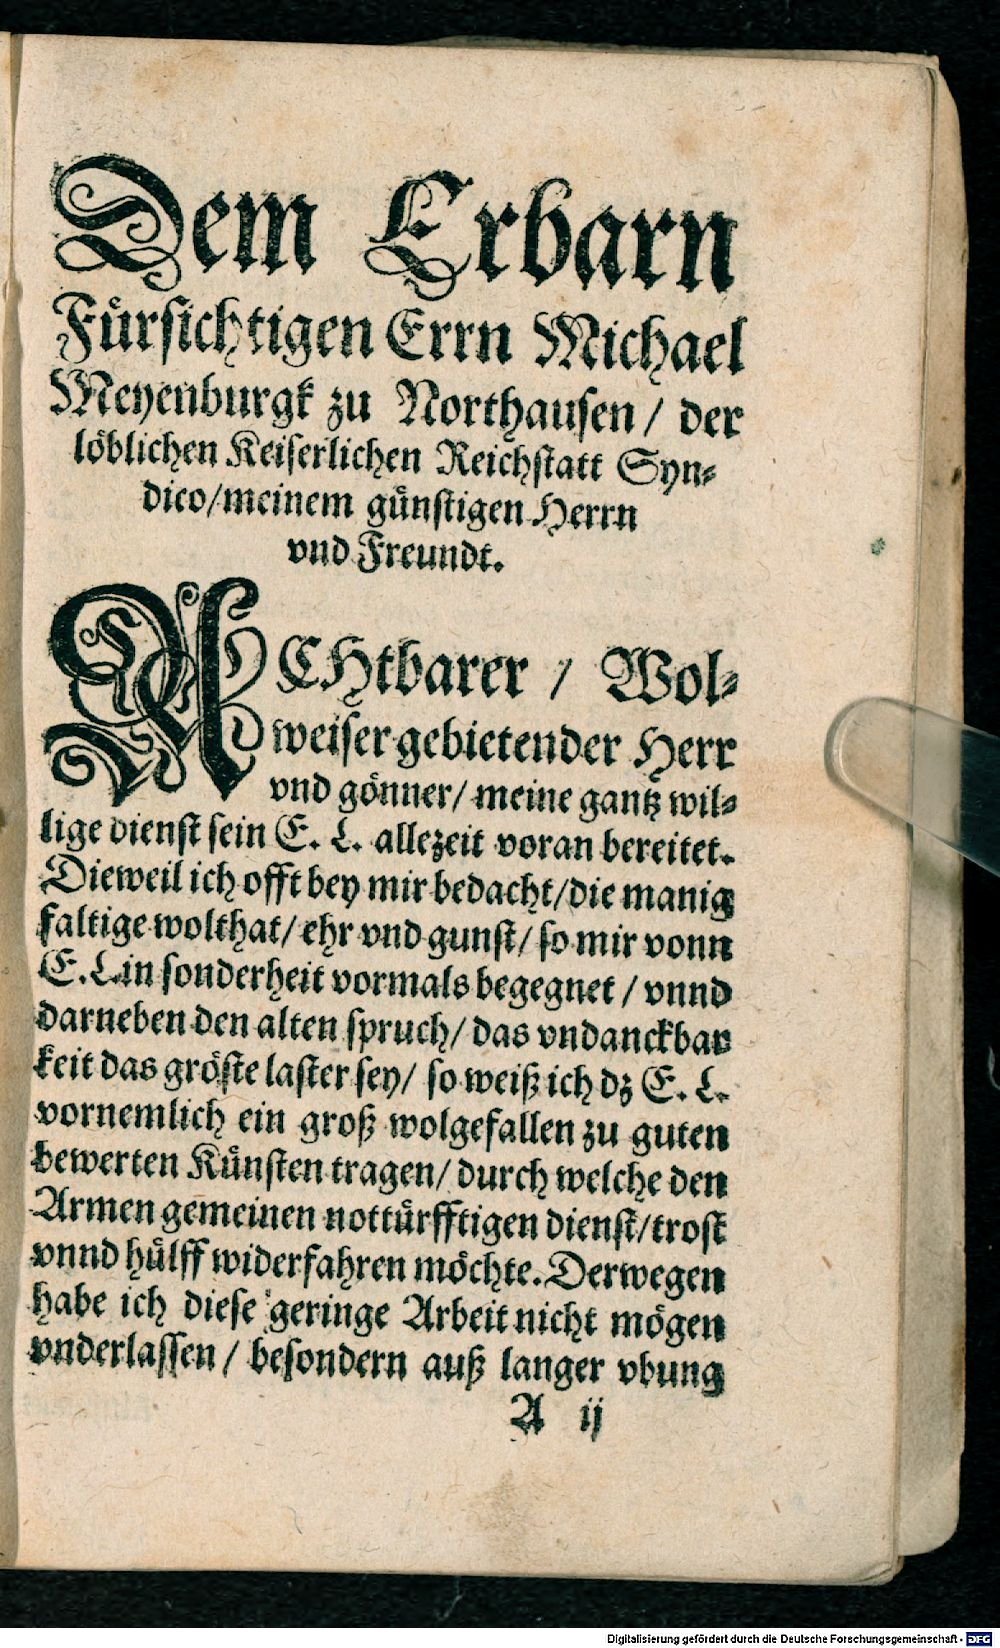 Dem Erbarn
Fürsichtigen Errn Michael
Meyenburgk zu Northausen / der
löblichen Keiserlichen Reichstatt Syn-
dico / meinem günstigen Herrn
vnd Freundt.
ACHtbarer / Wol-
weiser gebietender Herr
vnd gönner / meine gantz wil-
lige dienst sein E. L. allezeit voran bereitet.
Dieweil ich offt bey mir bedacht / die manig
faltige wolthat / ehr vnd gunst / so mir vonn
E. L. in sonderheit vormals begegnet / vnnd
darneben den alten spruch / das vndanckbar
keit das gröste laster sey / so weiß ich dz E. L.
vornemlich ein groß wolgefallen zu guten
bewerten Künsten tragen / durch welche den
Armen gemeinen nottürfftigen dienst / trost
vnnd hülff widerfahren möchte. Derwegen
habe ich diese geringe Arbeit nicht mögen
vnderlassen / besondern auß langer vbung
A ij
Digitalisierung gefördert durch die Deutsche Forschungsgemeinschaft - DFG